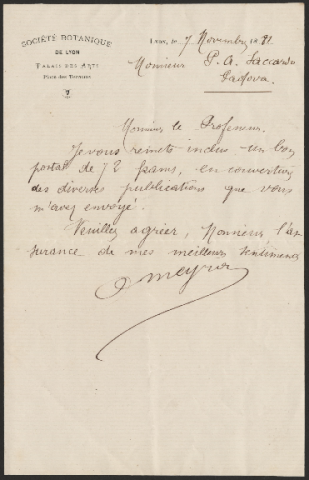 SOCIÉTÉ BOTANIQUE
DE LYON
PALAIS DES ARTS
Place des Terreaux
Lyon, le 7 Novembre 1881
Monsieur P. A. Saccardo
Padova.
Monsieur le Professeur,
Je vous remets inclus un bon
postal de 72 francs, en couverture
des diverses publications que vous
m'avez envoyé.
Veuillez agréer, Monsieur l'as
surance de mes meilleurs sentiments
O Meyran